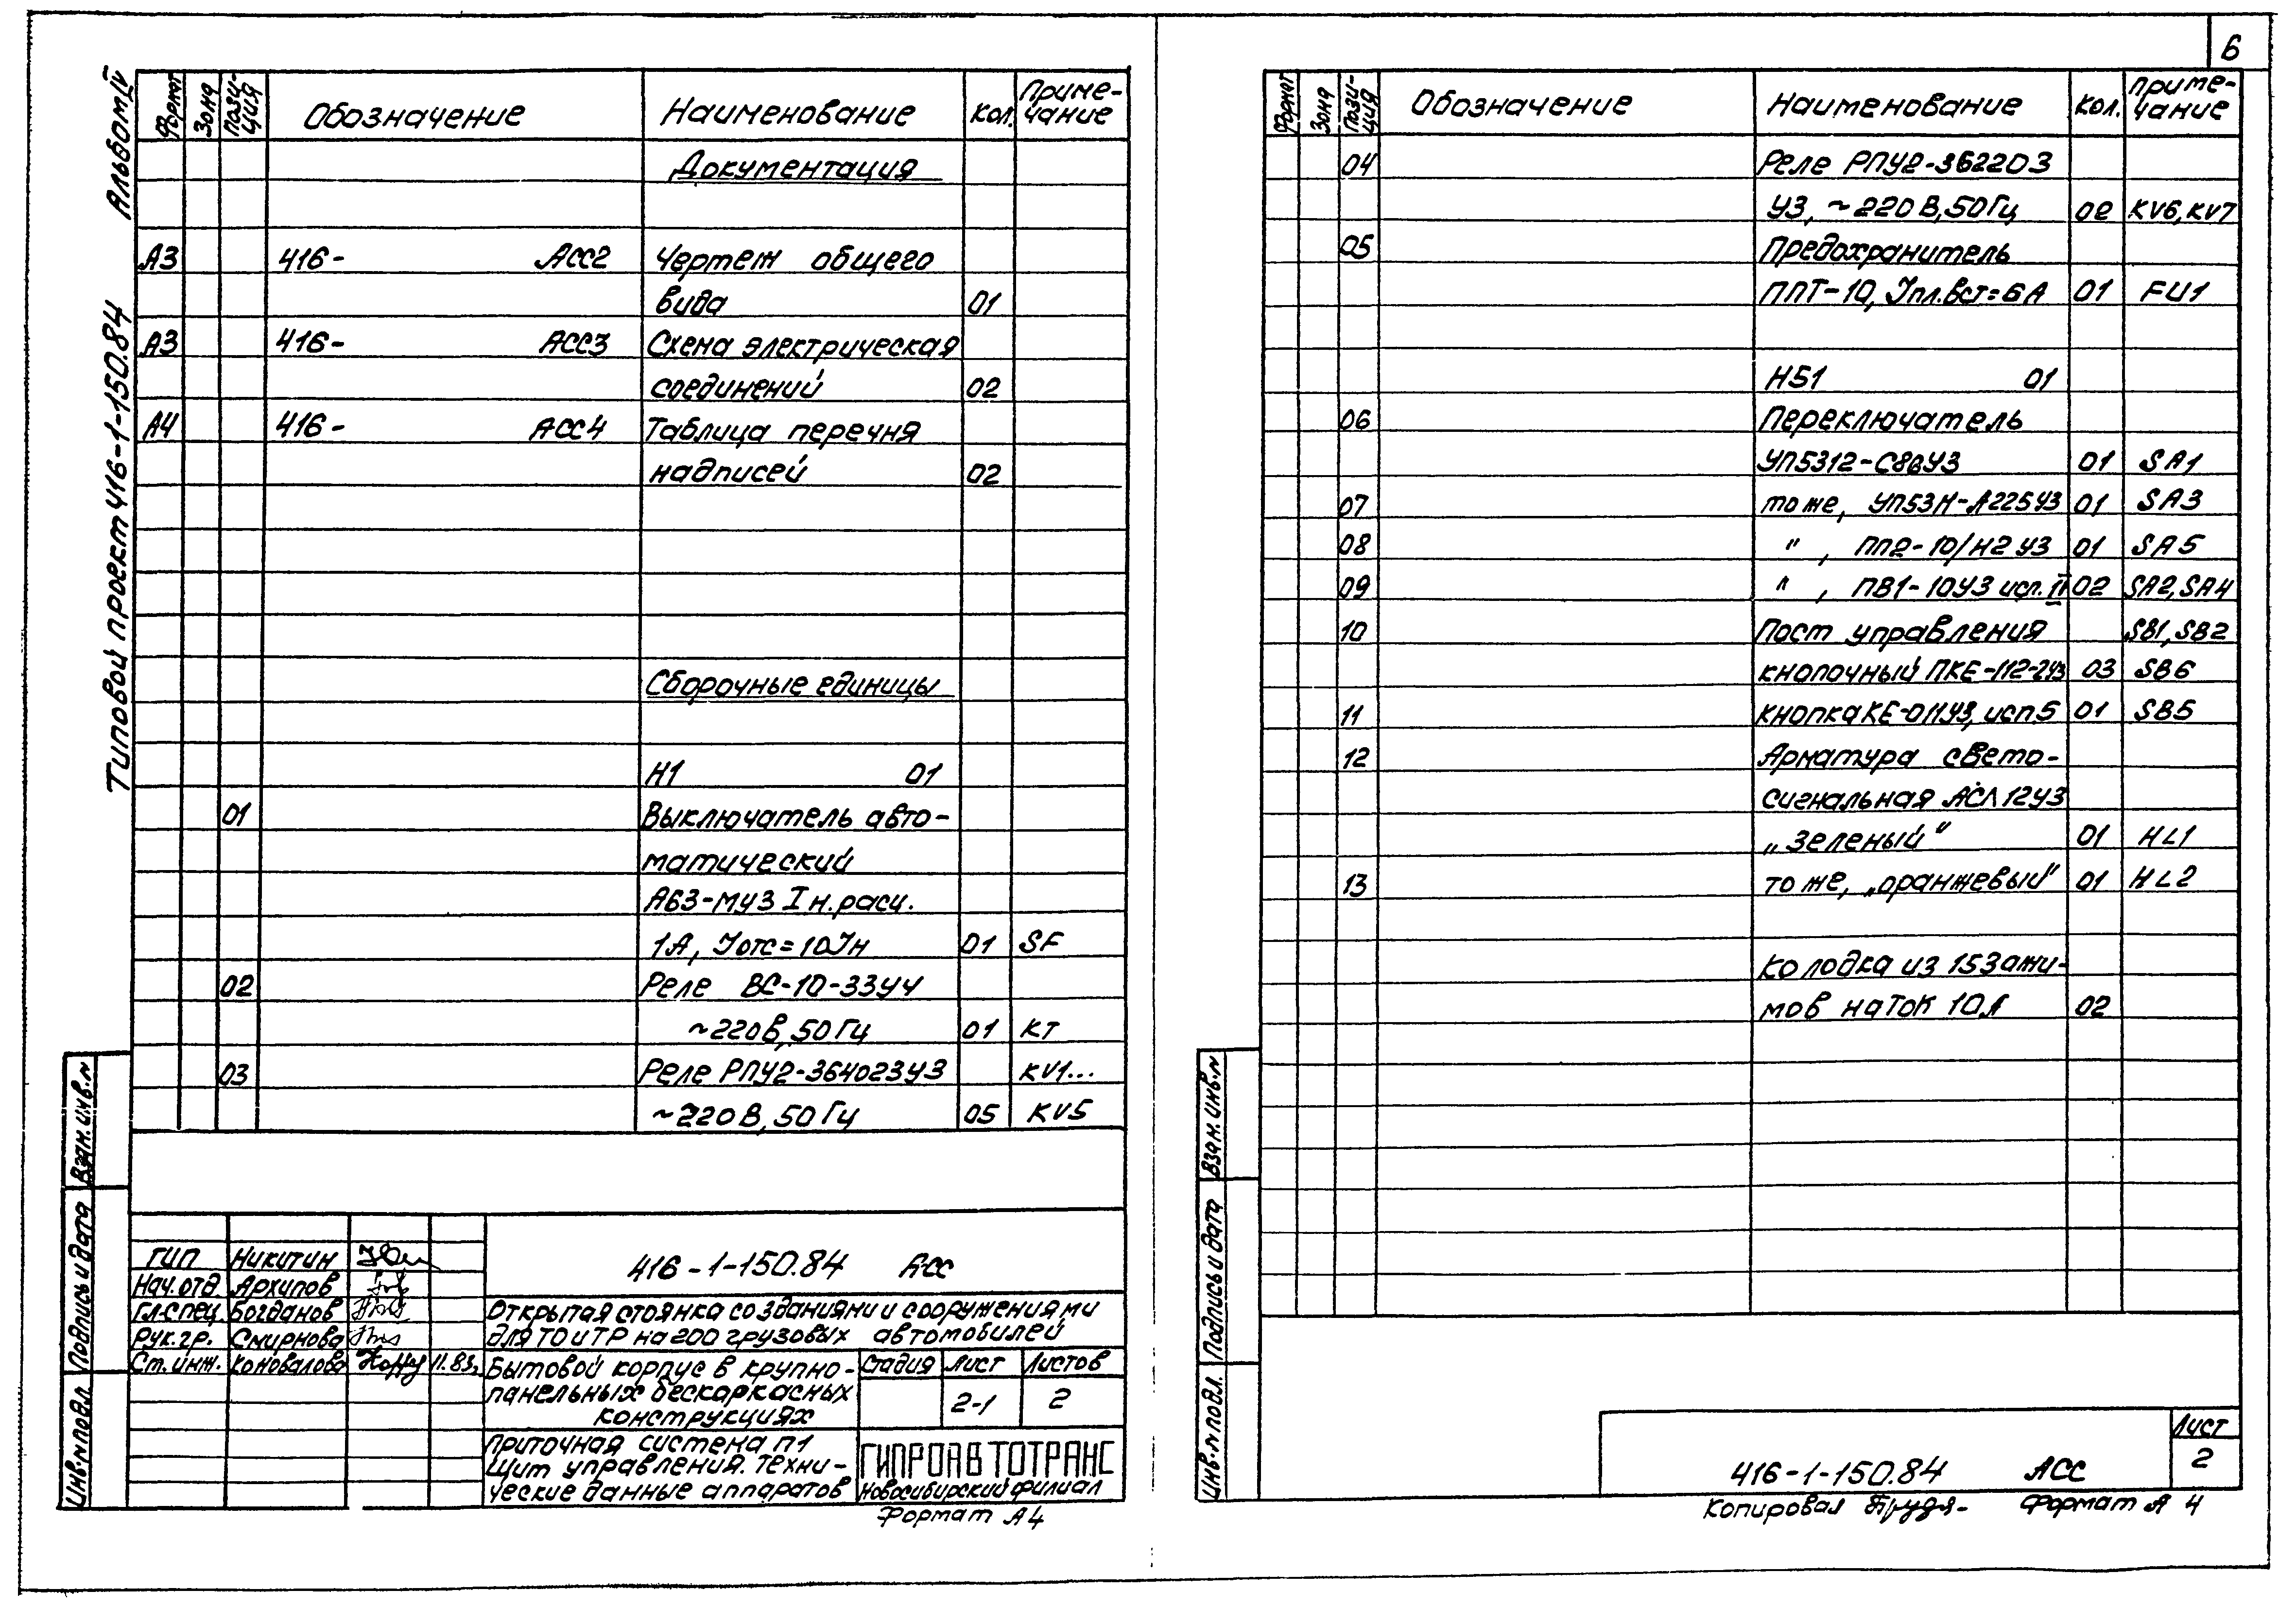 6
Альбом IV
Типовой проект 416-1-150.84
Формат Зона Пози-ция Обозначение Наименование Кол. Приме-чание
Документация
А3 416- АСС2 Чертеж общего
вида 01
А3 416- АСС3 Схема электрическая
соединений 02
А4 416- АСС4 Таблица перечня
надписей 02
Сборочные единицы
Н1 01
01 Выключатель авто-
матический
А63-МУ3 I н.расц.
1А, Jотс=10Jн 01 SF
02 Реле ВС-10-33У4
~220В,50Гц 01 КТ
03 Реле РПУ2-364023У3 KV1...
~220В,50Гц 05 KV5
Взам.инв.N
Подпись и дата
Инв.N подл.
ГИП Никитин
Нач.отд. Архипов
Гл.спец. Богданов
Рук.гр. Смирнова
Ст.инж. Коновалова 11.83г.
416-1-150.84 АСС
Открытая стоянка со зданиями и сооружениями
для ТО и ТР на 200 грузовых автомобилей
Бытовой корпус в крупно-
панельных бескаркасных
конструкциях
Стадия Лист Листов
2-1 2
Приточная система П1
Щит управления. Техни-
ческие данные аппаратов
ГИПРОАВТОТРАНС
Новосибирский филиал
Формат А4
Формат Зона Пози-ция Обозначение Наименование Кол. Приме-чание
04 Реле РПУ2-362203
У3, ~220В,50Гц 02 KV6,KV7
05 Предохранитель
ППТ-10, Jпл.вст=6А 01 FU1
Н51 01
06 Переключатель
УП5312-С86У3 01 SA1
07 то же, УП5311-А225У3 01 SA3
08 " , ПП2-10/Н2 У3 01 SA5
09 " , ПВ1-10У3 исп. II 02 SA2,SA4
10 Пост управления SB1,SB2
кнопочный ПКЕ-112-2У3 03 SB6
11 Кнопка КЕ-011У3, исп.5 01 SB5
12 Арматура свето-
сигнальная АСЛ12У3
„Зеленый" 01 HL1
13 то же, „оранжевый" 01 HL2
Колодка из 15 зажи-
мов на ток 10А 02
Взам.инв.N
Подпись и дата
Инв.N подл.
416-1-150.84 АСС
Лист
2
Копировал Формат А 4